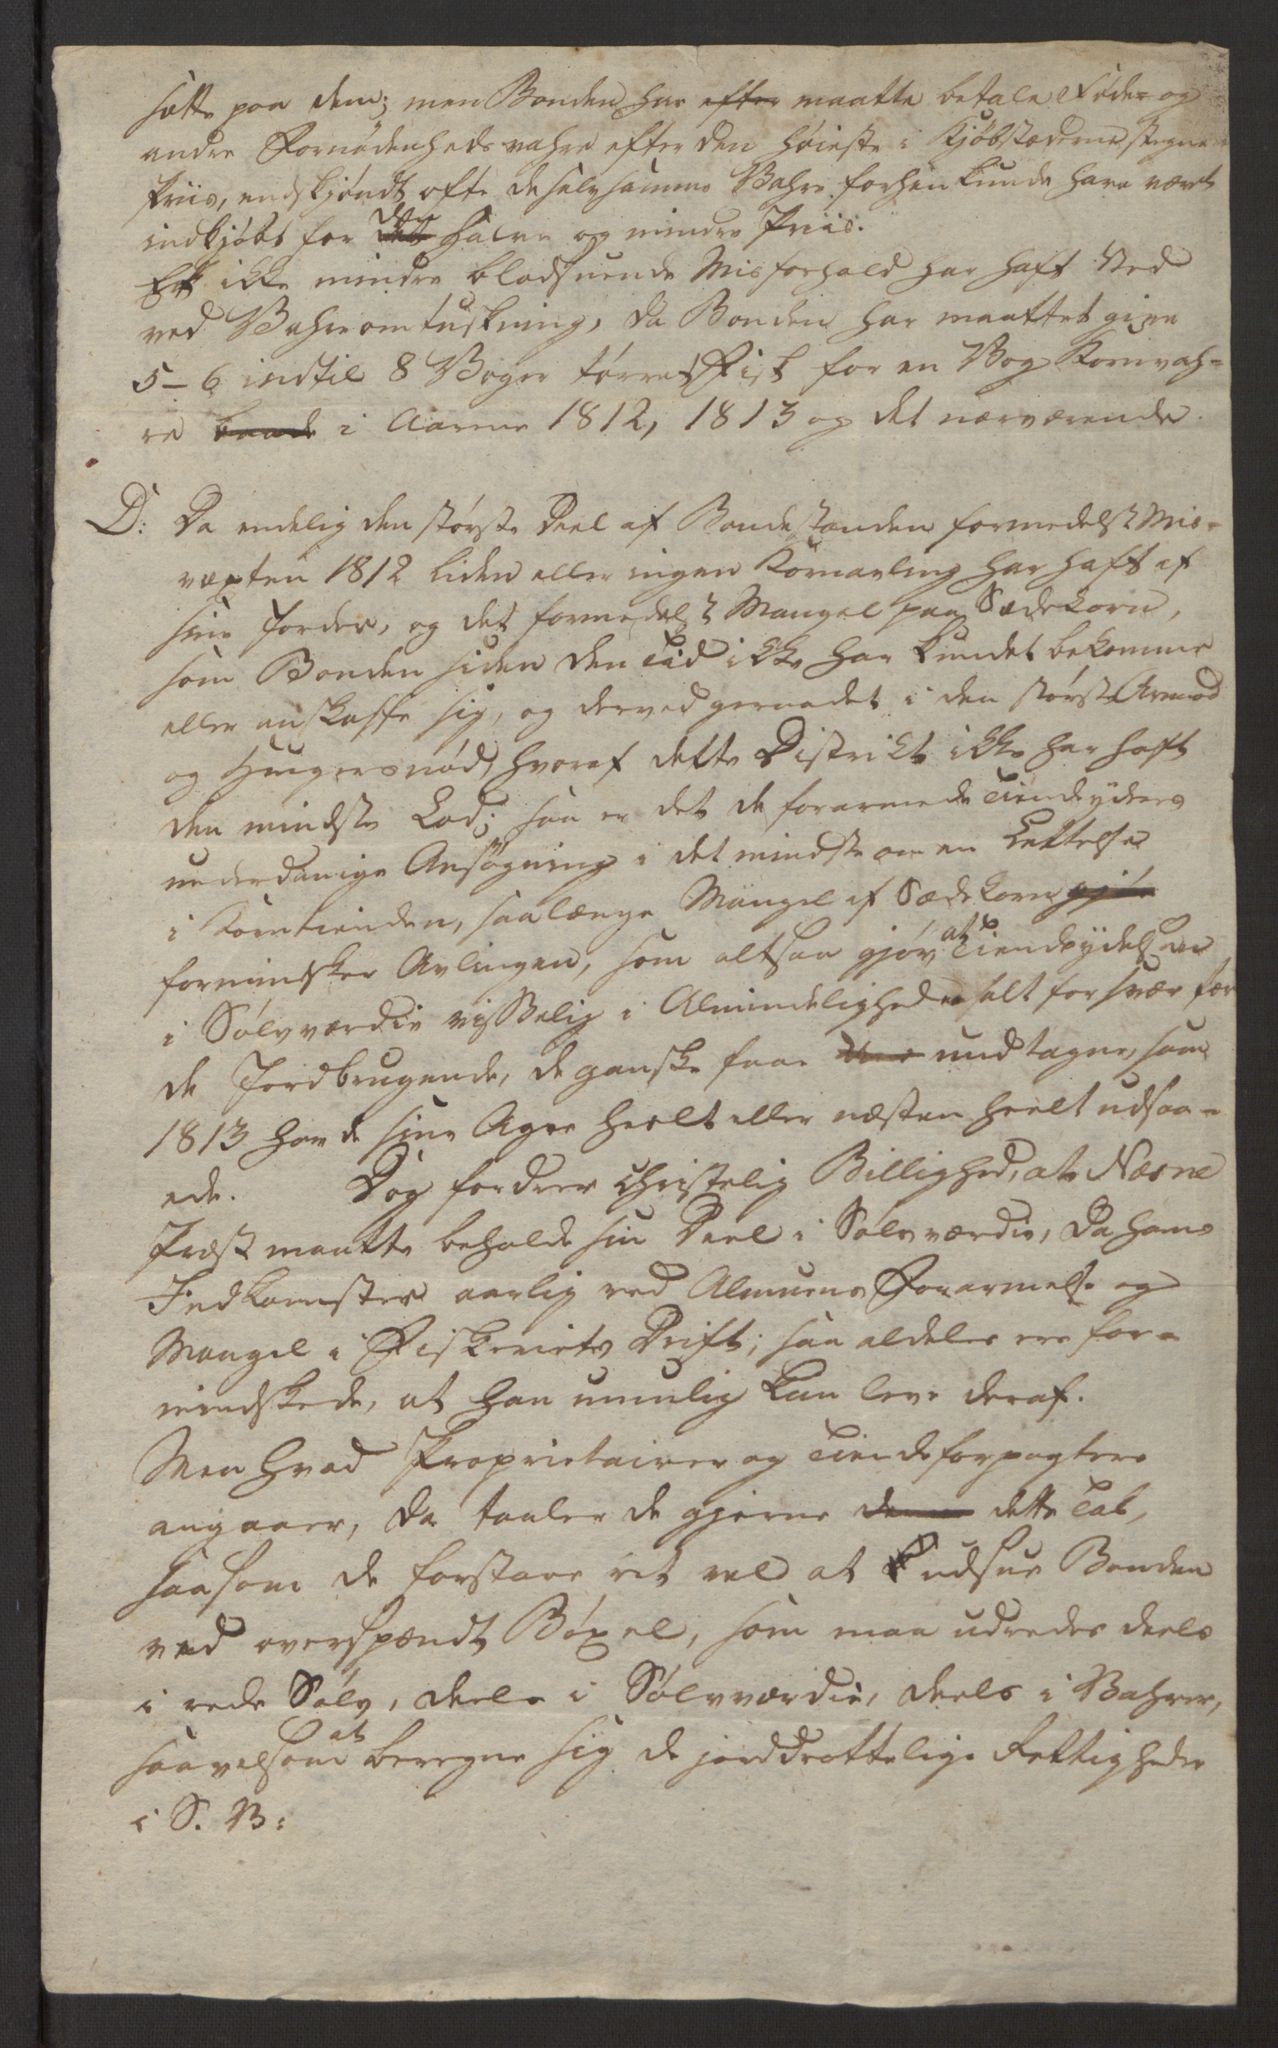 sætte paa dem; men Bonden har efter maatte betale Føde- og
andre Fornødenheds vahre efter den høieste i Kjøbstæderne stegne
Priis, endskjøndt ofte de selvsamme Vahre forhen kunde have været
indkjøbt for det den halve og mindre Priis.
Et ikke mindre blodsuende Misforhold har haft Sted
ved Vahreomtuskning, da Bonden har maattet give
5-6 indtil 8 Voger tørret Fisk for en Vog Kornvah-
re baade i Aarene 1812, 1813 og det nærværende.
D: Da endelig den største Deel af Bondestanden formedelst Mis-
væxten 1812 liden eller ingen Kornavling har haft af
sine Jorder, og det formedelst Mangel paa Sædekorn,
som Bonden siden den Tid ikke har kundet bekomme
eller anskaffe sig, og derved geraadet i den største Armod
og Hungersnød, hvoraf dette Distrikt ikke har haft
den mindste Lod; saa er det de forarmede Tiendeyderes
underdanige Ansøgning i det mindste om en Lettelse
i Korntienden, saalænge Mangel af Sædekorn gjør
formindsker Avlingen, som altsaa gjør at Tiendeydelsen
i Sølvværdie visselig i Almindelighed er alt for svær for
de Jordbrugende, de ganske faae undtagne, som
1813 havde sine Agre heelt eller næsten heelt udsaa-
ede. Dog fordrer christelig Billighed, at Næsne
Præst maatte beholde sin Deel i Sølvværdie, da hans
Indkomster aarlig ved Almuens Forarmelse og
Mangel i Fiskeriets Drift; saa aldeles ere for-
mindskede, at han umulig kan leve deraf.
Men hvad Proprietairer og Tiendeforpagtere
angaaer, da taaler de gjerne dette Tab,
saasom de forstaae ret vel at udsue Bonden
ved overspændt Bøxel, som maa udredes deels
i rede Sølv, deels i Sølvværdie, deels i Vahrer,
saavelsom at beregne sig de jorddrottelige Rettigheder
i S. V: